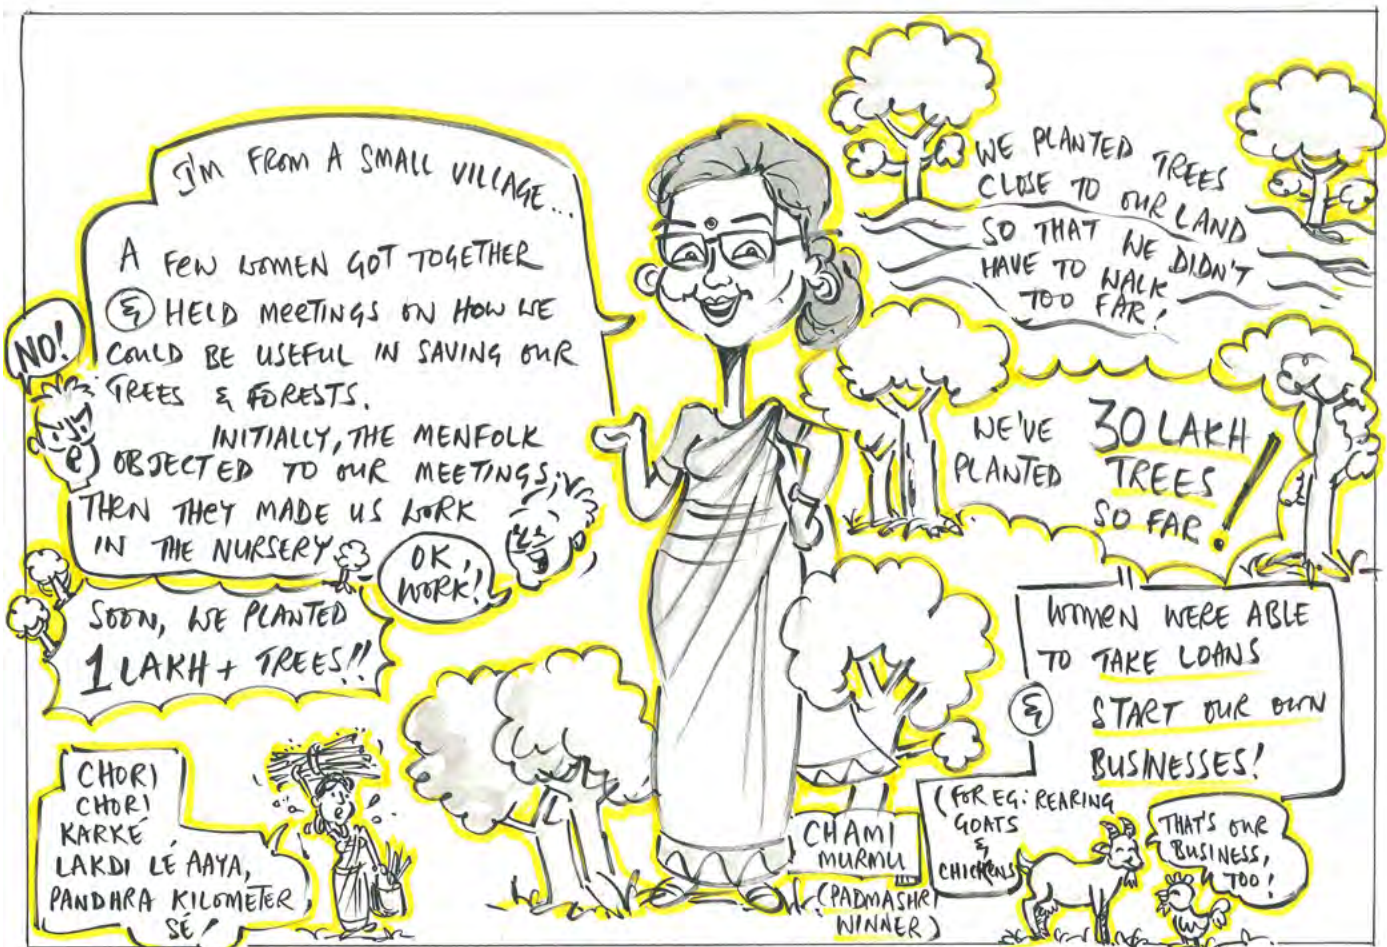 I'M FROM A SMALL VILLAGE...
A FEW WOMEN GOT TOGETHER
& HELD MEETINGS ON HOW WE
COULD BE USEFUL IN SAVING OUR
TREES & FORESTS.
INITIALLY, THE MENFOLK
OBJECTED TO OUR MEETINGS,
THEN THEY MADE US WORK
IN THE NURSERY
NO!
OK,
WORK!
SOON, WE PLANTED
1 LAKH + TREES!!
CHORI
CHORI
KARKÉ
LAKDI LÉ AAYA,
PANDHRA KILOMETER
SÉ!
WE PLANTED TREES
CLOSE TO OUR LAND
SO THAT WE DIDN'T
HAVE TO WALK
TOO FAR!
WE'VE
PLANTED
30 LAKH
TREES
SO FAR!
WOMEN WERE ABLE
TO TAKE LOANS
& START OUR OWN
BUSINESSES!
(FOR EG: REARING
GOATS
&
CHICKENS)
THAT'S OUR
BUSINESS,
TOO!
CHAMI
MURMU
(PADMASHRI
WINNER)